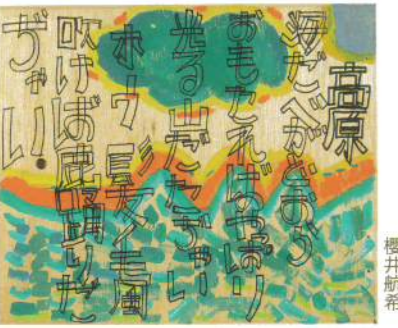 高原
海だべがどおら
おもたればやっぱり
光る山だたぢゃい
ホウ 髪毛風
吹けば鹿踊りだ
ぢゃい。
櫻井航希